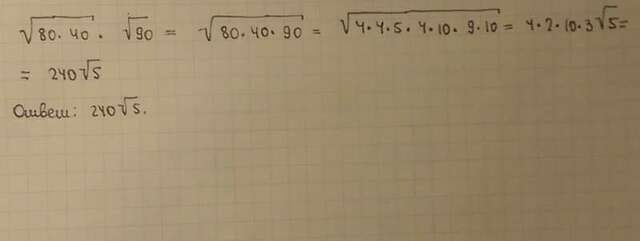 √80·40 · √90 = √80·40·90 = √4·4·5·4·10·9·10 = 4·2·10·3√5=
= 240√5
Ответ: 240√5.